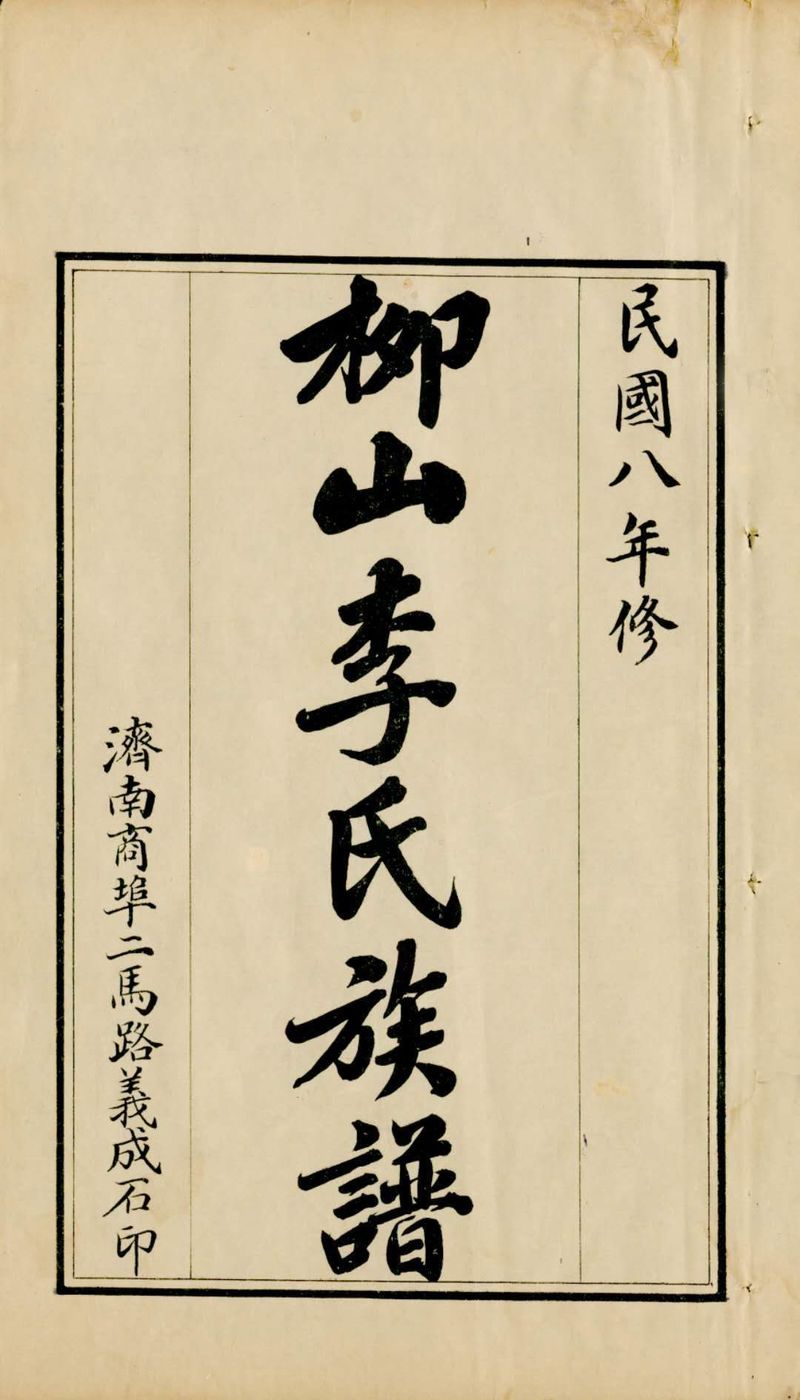 民國八年修
柳山李氏族譜
濟南商埠二馬路義成石印